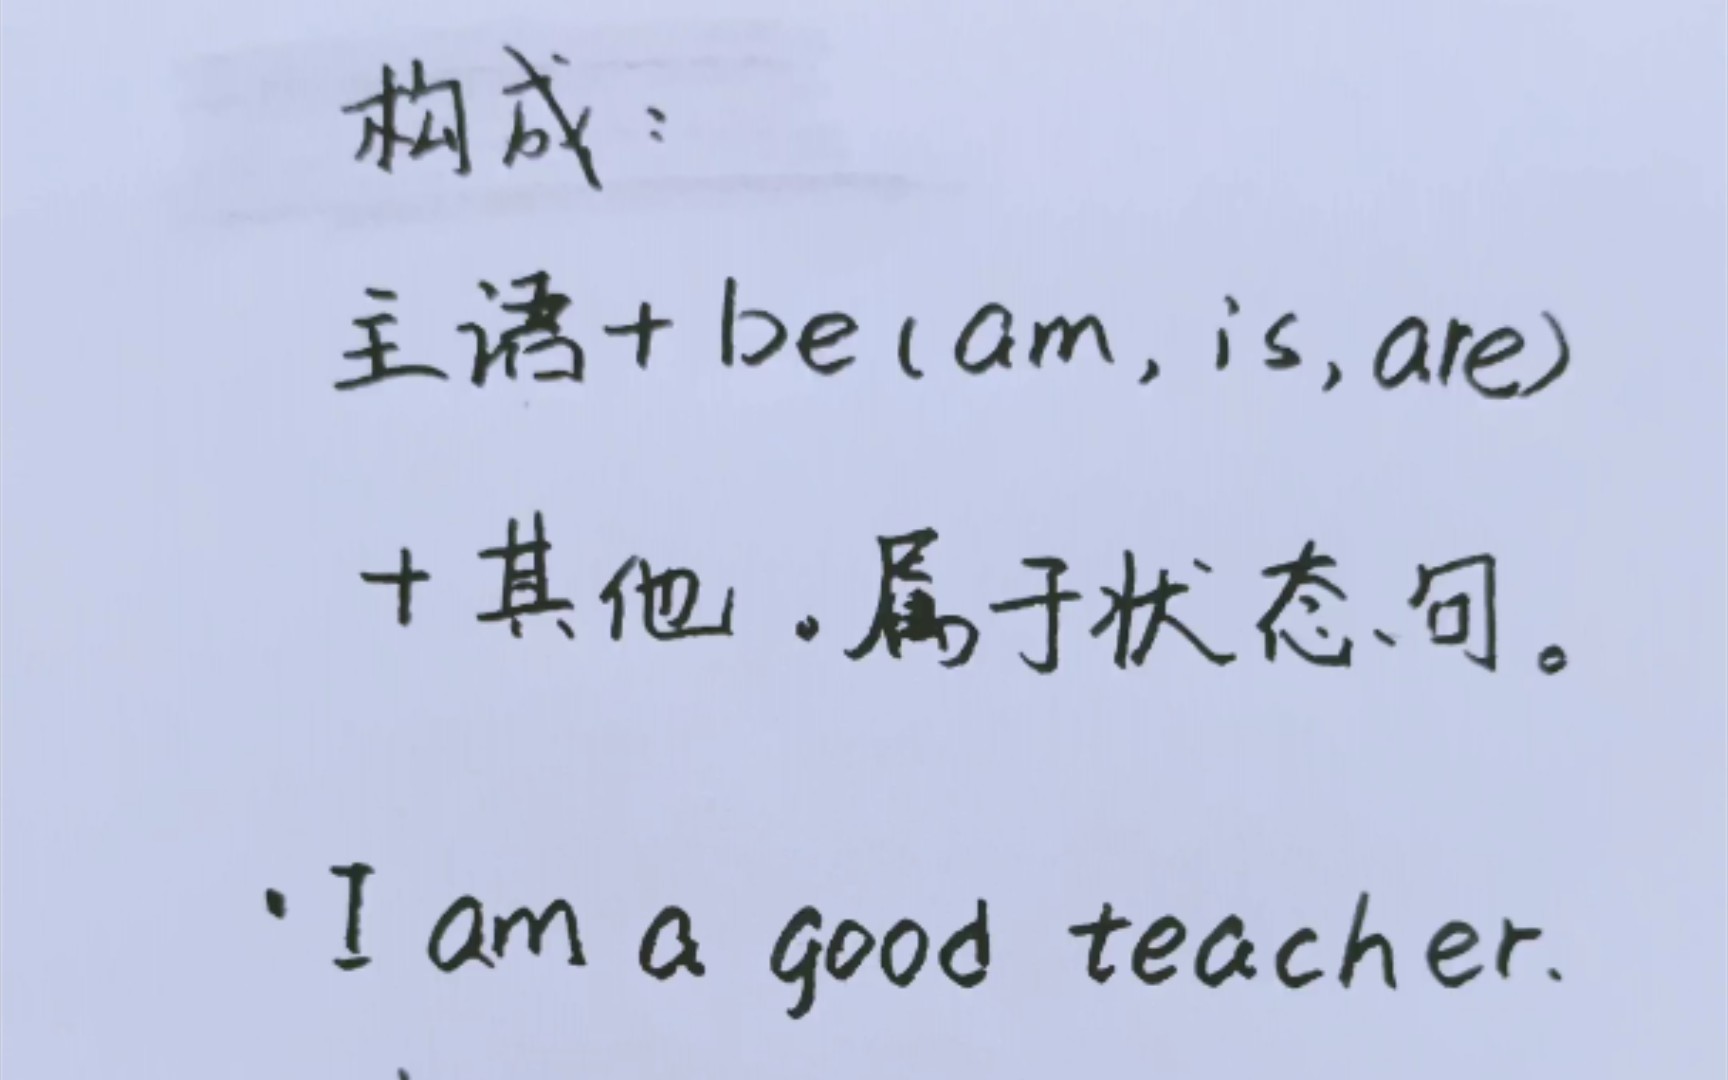 构成：
主语+be(am, is, are)
+其他.属于状态句。
·I am a good teacher.